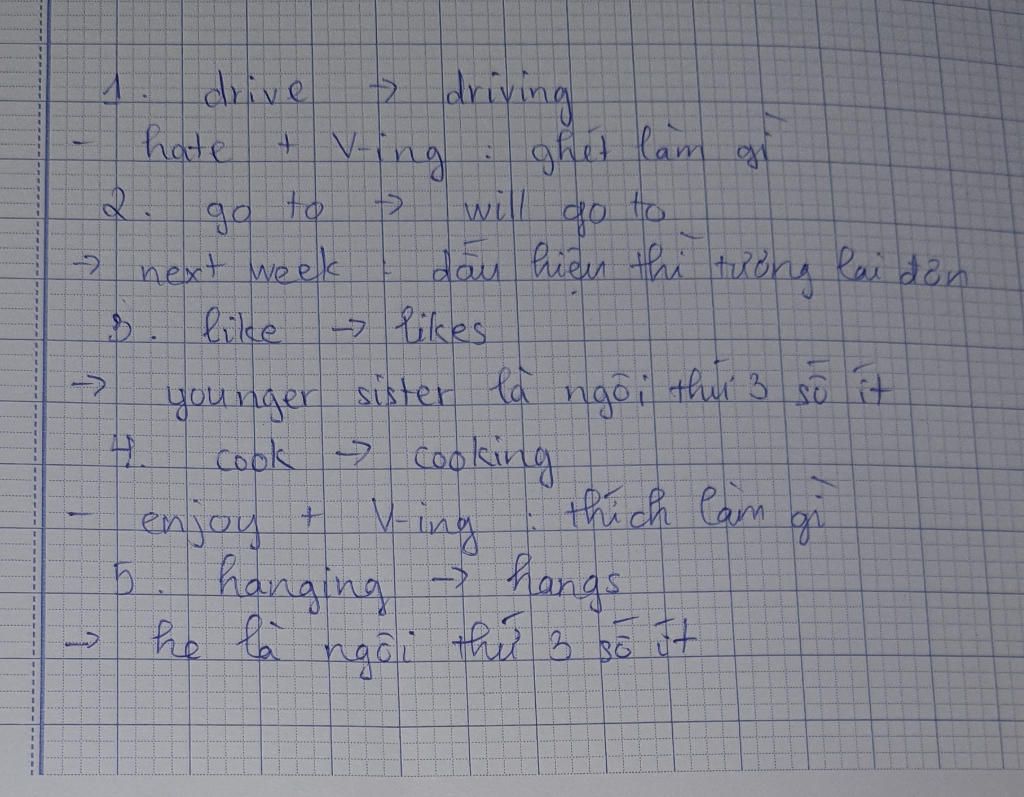 1. drive → driving
- hate + V-ing : ghét làm gì
2. go to → will go to
→ next week : dấu hiệu thì tương lai đơn
3. like → likes
→ younger sister là ngôi thứ 3 số ít
4. cook → cooking
- enjoy + V-ing : thích làm gì
5. hanging → hangs
→ he là ngôi thứ 3 số ít